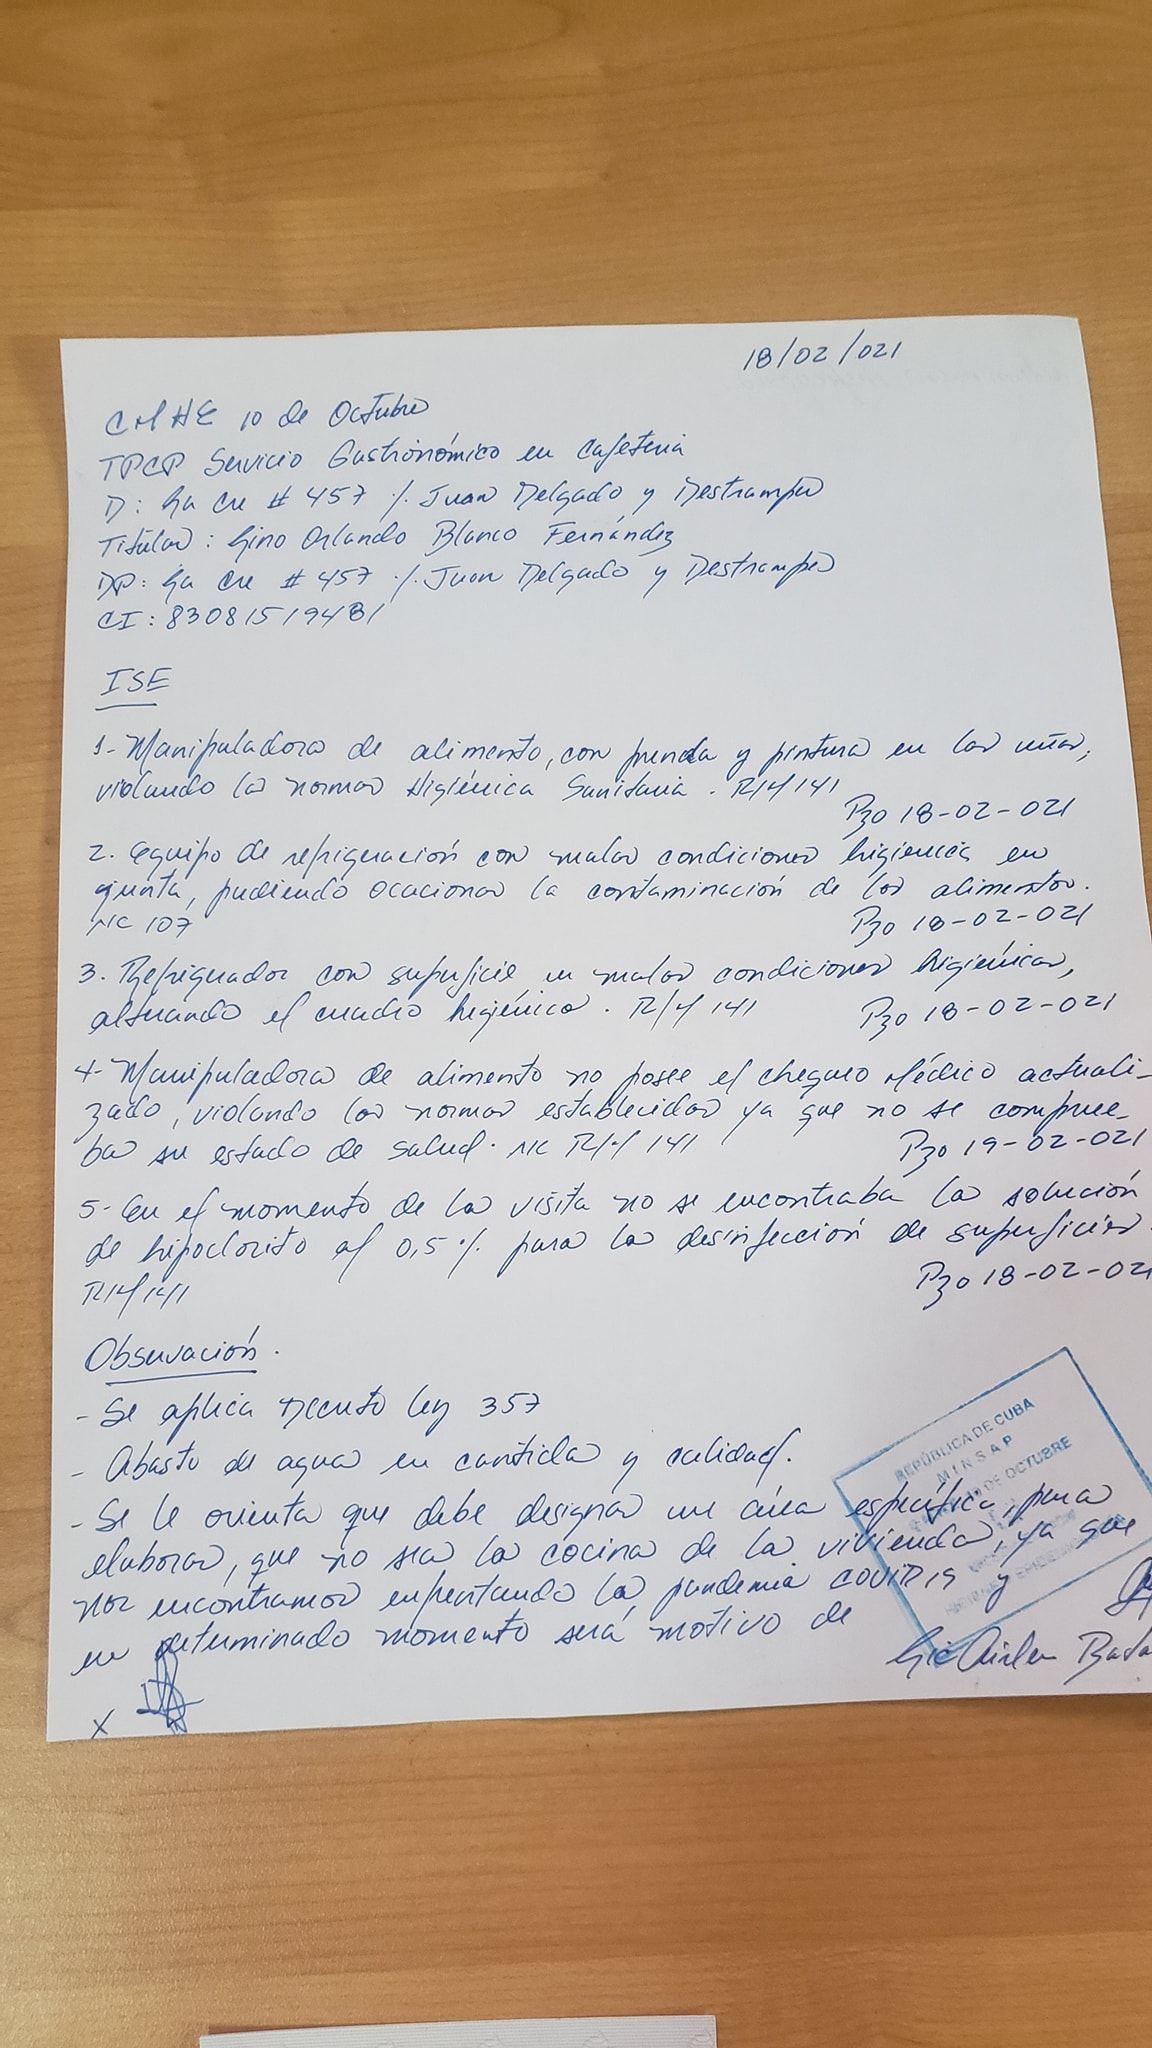 18/02/021
CMHE 10 de Octubre
TPCP Servicio Gastronómico en Cafeteria
D: Ga cre # 457 %. Juan Delgado y Destrampes
Titular: Gino Orlando Blanco Fernández
DP: Ga cre # 457 %. Juan Delgado y Destrampes
CI: 83081519481
ISE
1- Manipuladora de alimento, con prenda y pintura en las uñas,
violando las normas Higiénica Sanitaria. RM 141
Pzo 18-02-021
2. Equipo de refrigeración con malas condiciones higienicas en
junta, pudiendo ocacionar la contaminación de los alimentos.
NC 107
Pzo 18-02-021
3. Refrigerador con superficie en malas condiciones higiénicas,
alterando el cuadro higiénico. RM 141
Pzo 18-02-021
4- Manipuladora de alimento no posee el chequeo Médico actuali-
zado, violando las normas establecidas ya que no se comprue-
ba su estado de salud. NC RM 141
Pzo 19-02-021
5- En el momento de la visita no se encontraba la solución
de hipoclorito al 0,5% para la desinfección de superficies.
RM 141
Pzo 18-02-021
Observación.
- Se aplica Decreto Ley 357
- Abasto de agua en cantida y calidad.
- Se le orienta que debe designar un área específica, para
elaborar, que no sea la cocina de la vivienda, ya que
nos encontramos enfrentando la pandemia COVID19 y
en determinado momento será motivo de
REPÚBLICA DE CUBA
MINSAP
DE OCTUBRE
X